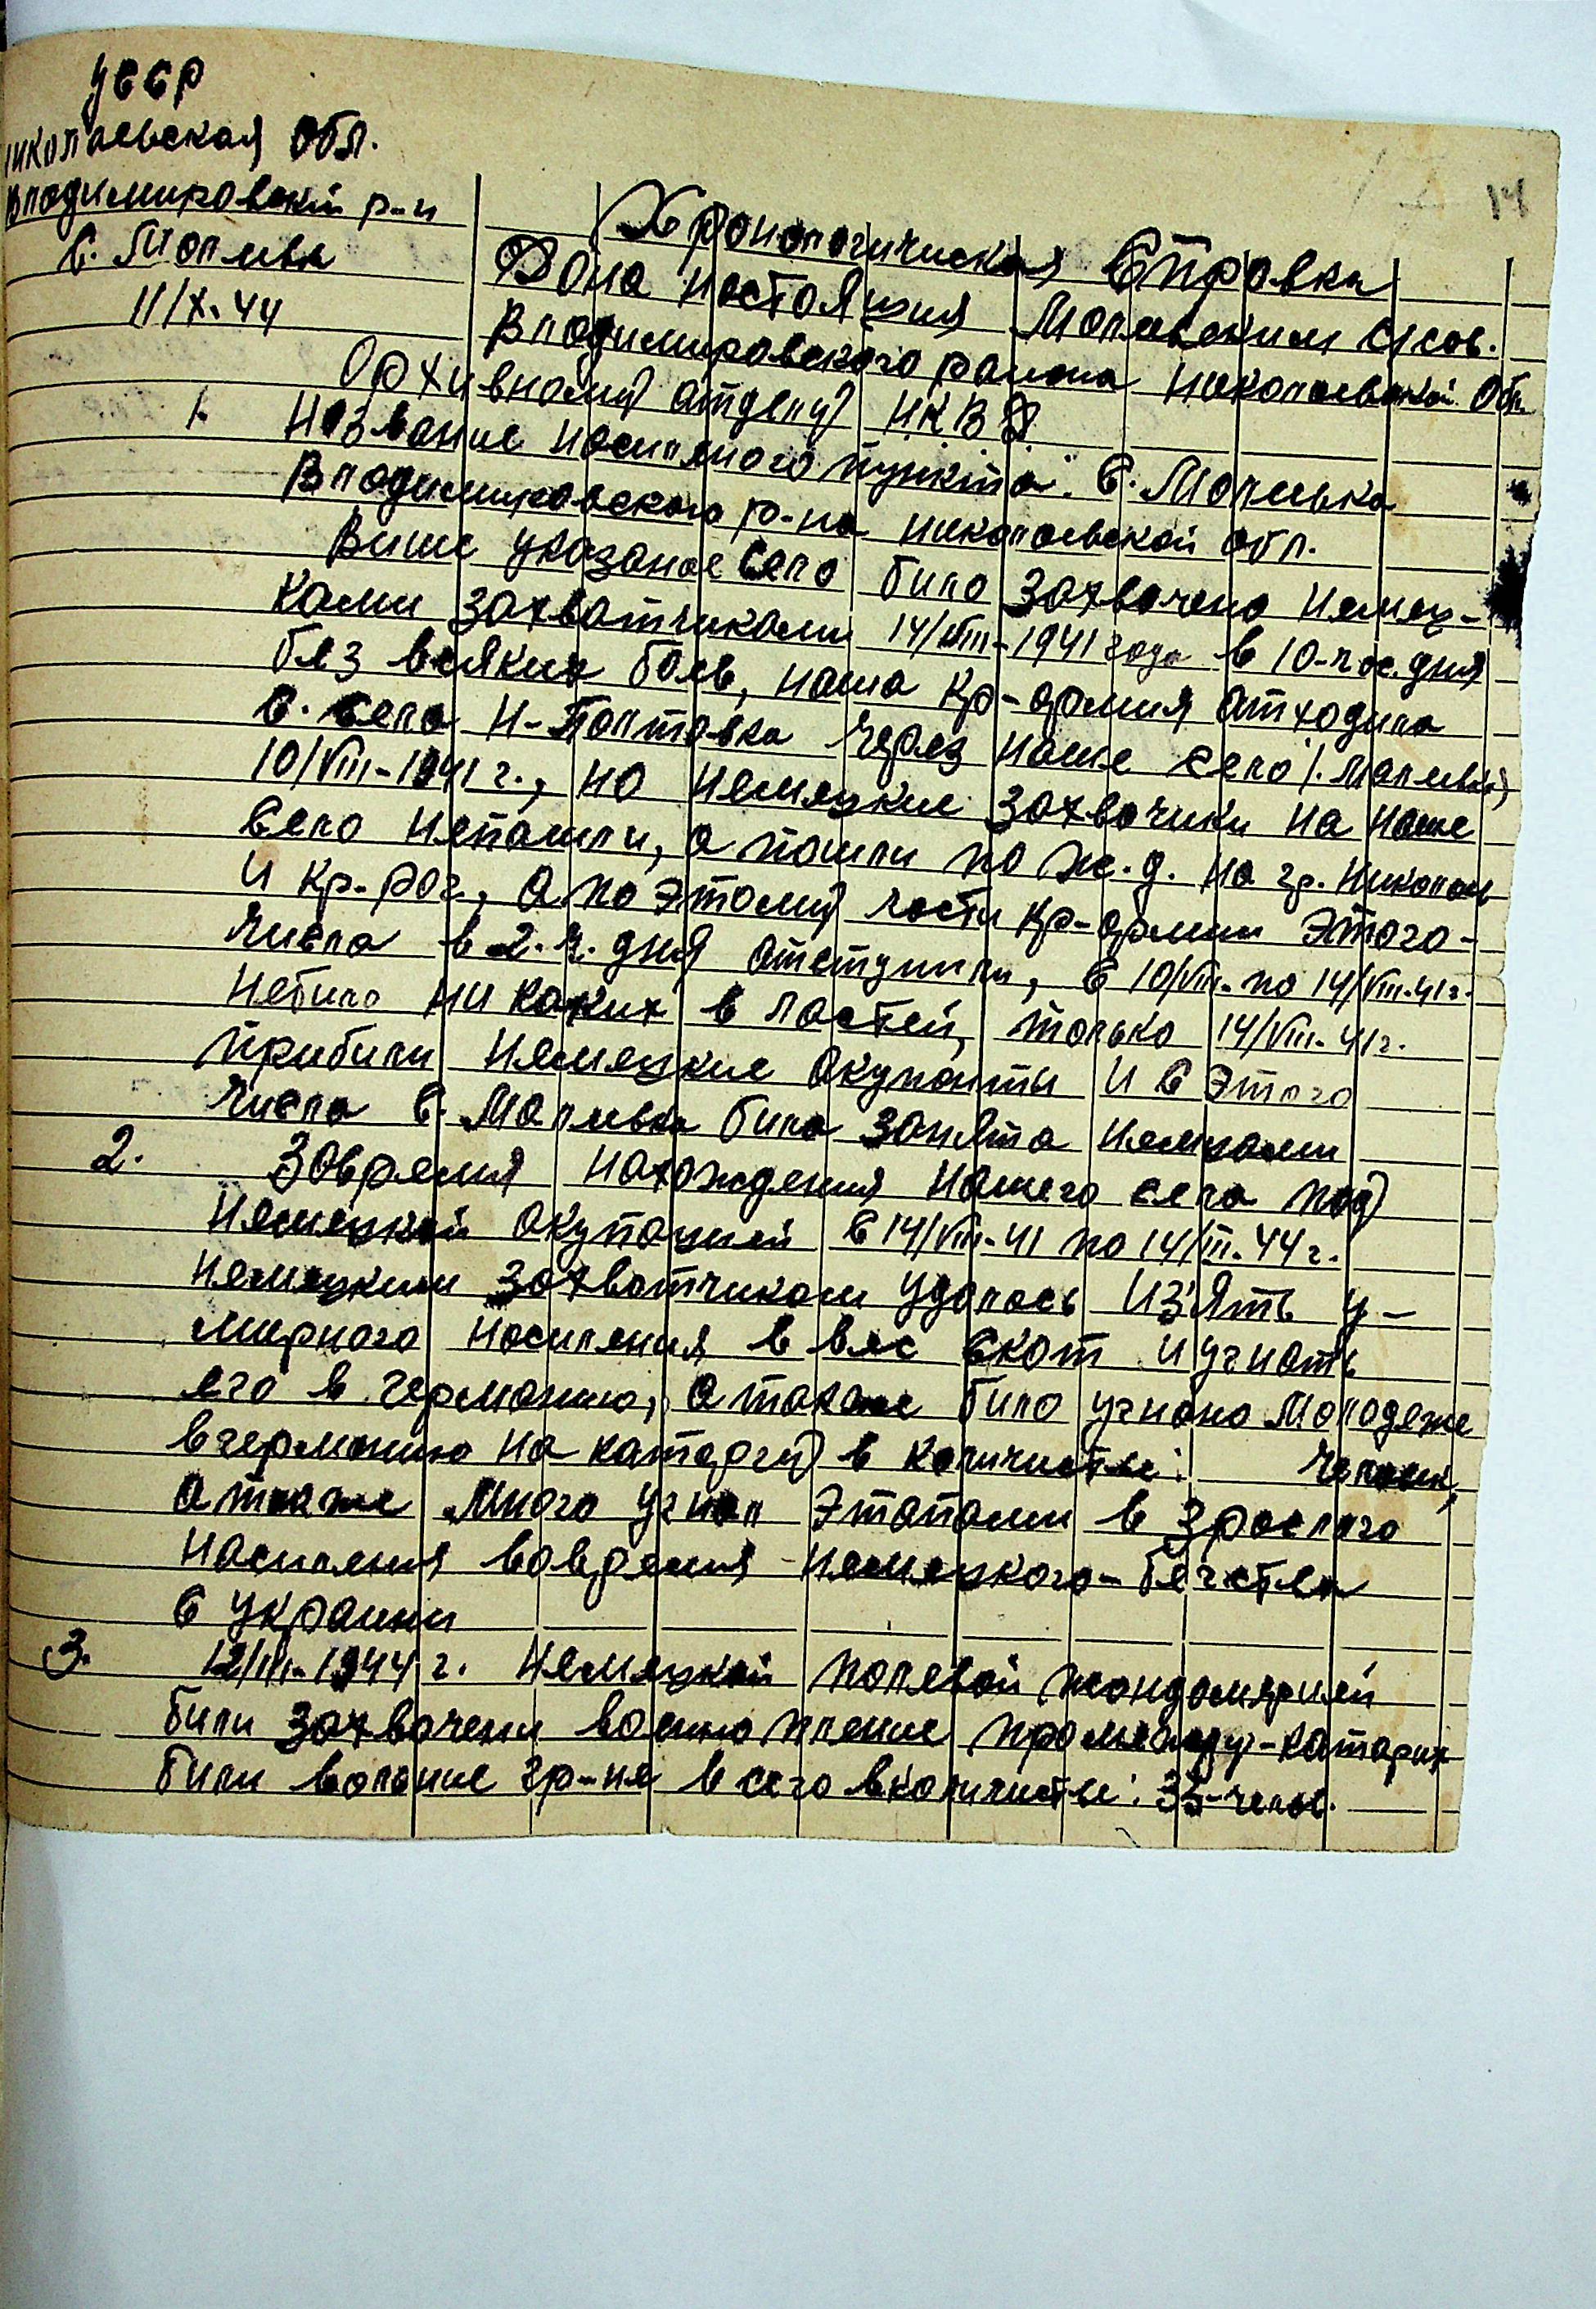 14
УССР
николаевская обл.
Владимировский р-н
с. Малиевка
11/X-44
Хронологическая Справка
Дана настоящия Малиевским с/сов.
Владимировского района николаевской Обл.
Орхивному атделу НКВД
1. Название носиленого пункта: С. Малиевка
Владимировского р-на николаевской обл.
Више указаное село било захвачено немец-
ками захватчиками 14/VIII-1941 года в 10-час. дня
без всяких боев, наша кр-армия атходила
с. села Н-Полтавка через наше село /. Малиевка,
10/VIII-1941 г., но немецкие захвачики на наше
село непашли, а пошли по ж.д. на гр. Николаев
и кр-рог, а по этому части кр-армии этого-
числа в 2.ч. дня атступили, с 10/VIII- по 14/VIII-41г.
небило ни каких в ластей, только 14/VIII-41г.
прибили немецкие акупанты и с этого
числа с. Малиевка била занята немцами
2. Завремия нахождения нашего села под
немецкой акупацией с 14/VIII-41 по 14/III-44 г.
немецким захватчикам удалось из'ять у-
мирного носиления в вес скот и угнать
его в германию, а также било угнано молодеже
вгерманию на катаргу в количистве: человек,
а также много угнал этапами в зрослого
носиления вовремия немецкого-бегства
с украини
3. 12/III-1944 г. немецкой полевой жандармрией
били захвачени военно пление промежду-катарих
били вольние гр-не в сего вколичистве: 35-челов.